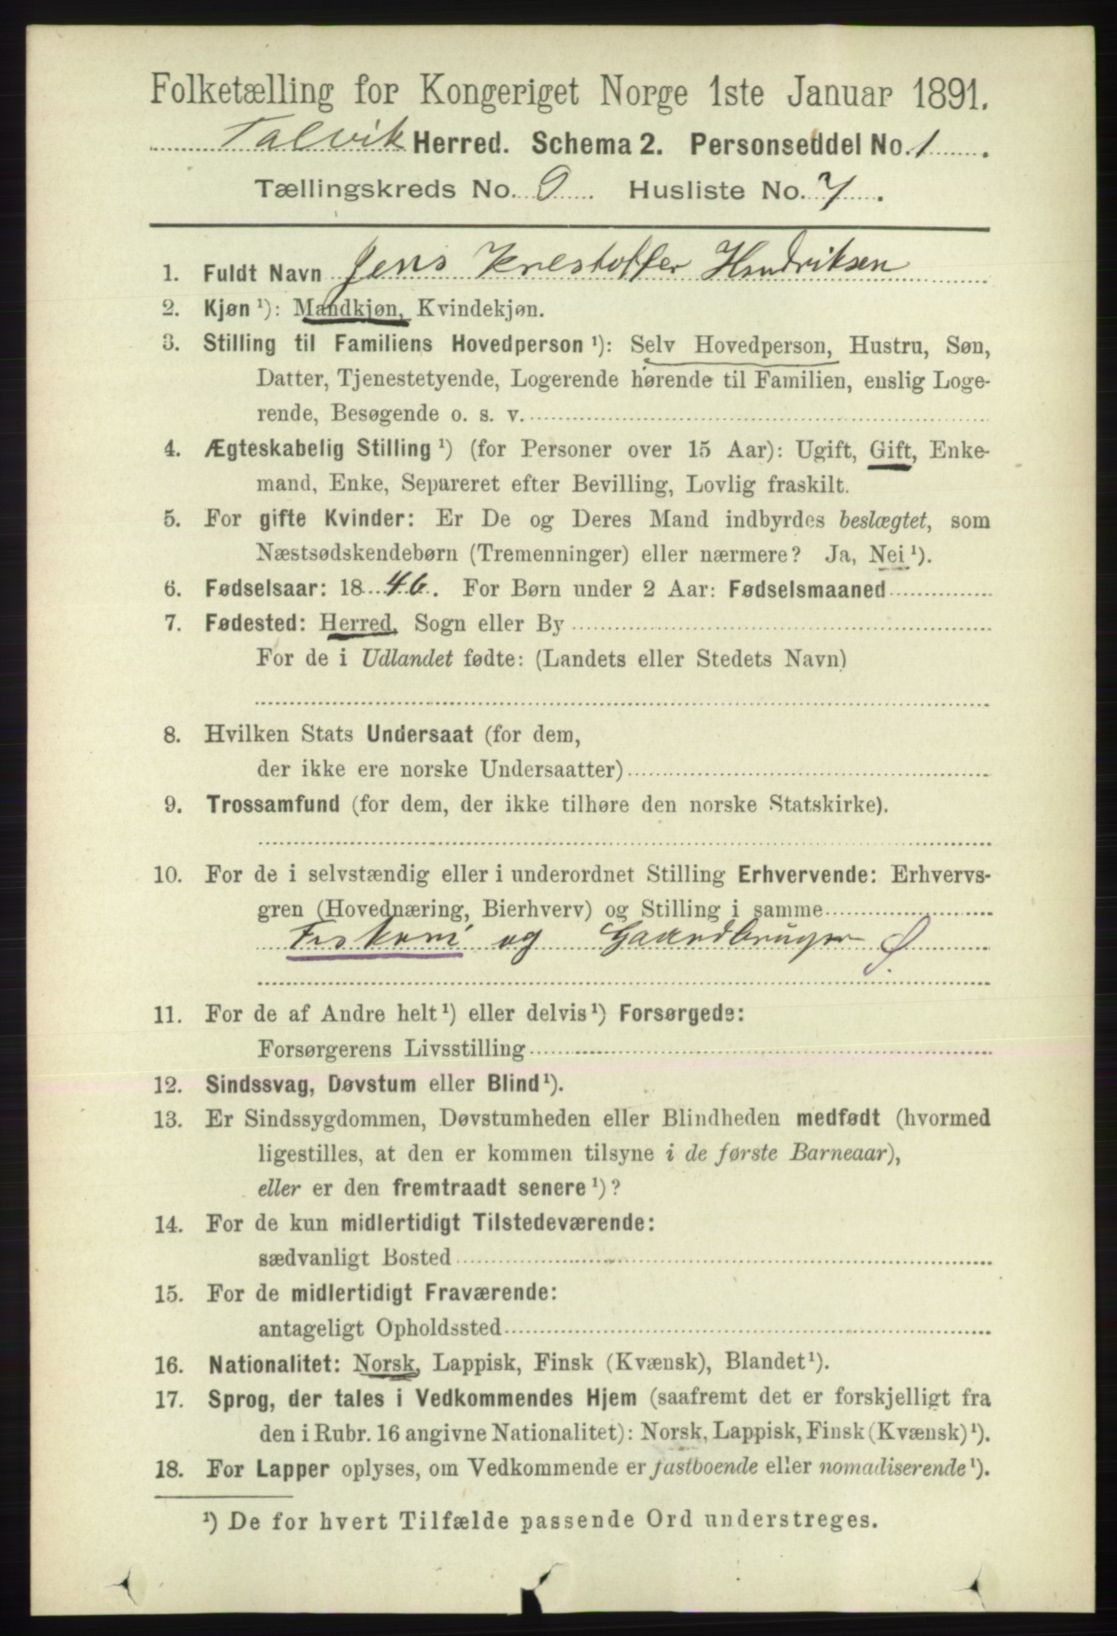 Folketælling for Kongeriget Norge 1ste Januar 1891.
Talvik Herred. Schema 2. Personseddel No. 1.
Tællingskreds No. 9. Husliste No. 7.
1. Fuldt Navn Jens Krestoffer Hendriksen
2. Kjøn ¹): Mandkjøn, Kvindekjøn.
3. Stilling til Familiens Hovedperson ¹): Selv Hovedperson, Hustru, Søn,
Datter, Tjenestetyende, Logerende hørende til Familien, enslig Loge-
rende, Besøgende o. s. v.
4. Ægteskabelig Stilling ¹) (for Personer over 15 Aar): Ugift, Gift, Enke-
mand, Enke, Separeret efter Bevilling, Lovlig fraskilt.
5. For gifte Kvinder: Er De og Deres Mand indbyrdes beslægtet, som
Næstsødskendebørn (Tremenninger) eller nærmere? Ja, Nei ¹).
6. Fødselsaar: 1846. For Børn under 2 Aar: Fødselsmaaned
7. Fødested: Herred, Sogn eller By
For de i Udlandet fødte: (Landets eller Stedets Navn)
8. Hvilken Stats Undersaat (for dem,
der ikke ere norske Undersaatter)
9. Trossamfund (for dem, der ikke tilhøre den norske Statskirke).
10. For de i selvstændig eller i underordnet Stilling Erhvervende: Erhvervs-
gren (Hovednæring, Bierhverv) og Stilling i samme
Fiskeri og Gaardbruger S.
11. For de af Andre helt ¹) eller delvis ¹) Forsørgede:
Forsørgerens Livsstilling
12. Sindssvag, Døvstum eller Blind ¹).
13. Er Sindssygdommen, Døvstumheden eller Blindheden medfødt (hvormed
ligestilles, at den er kommen tilsyne i de første Barneaar),
eller er den fremtraadt senere ¹)?
14. For de kun midlertidigt Tilstedeværende:
sædvanligt Bosted
15. For de midlertidigt Fraværende:
antageligt Opholdssted
16. Nationalitet: Norsk, Lappisk, Finsk (Kvænsk), Blandet ¹).
17. Sprog, der tales i Vedkommendes Hjem (saafremt det er forskjelligt fra
den i Rubr. 16 angivne Nationalitet): Norsk, Lappisk, Finsk (Kvænsk) ¹).
18. For Lapper oplyses, om Vedkommende er fastboende eller nomadiserende ¹).
¹) De for hvert Tilfælde passende Ord understreges.